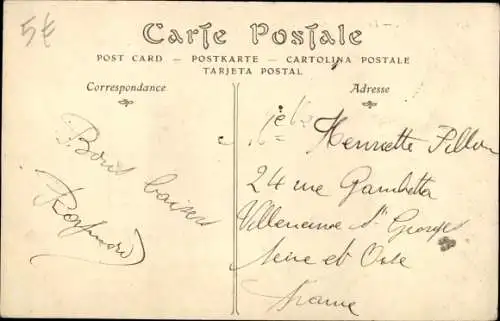 5€
Carte Postale
POST CARD — POSTKARTE — CARTOLINA POSTALE
TARJETA POSTAL
Correspondance
Adresse
Bons baisers
Raymond
Henriette
24 rue Gambetta
Villeneuve St Georges
Seine et Oise
France